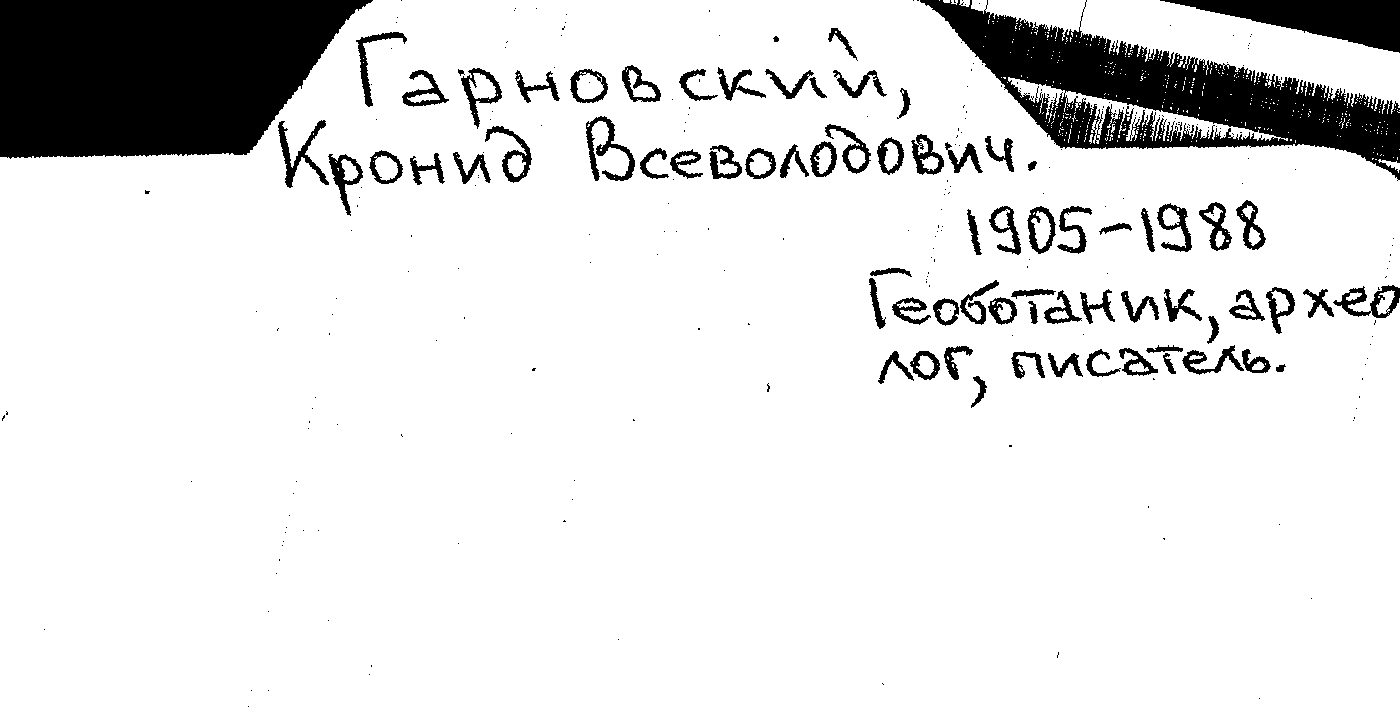 Гарновский,
Кронид Всеволодович.
1905-1988
Геоботаник, архео
лог, писатель.